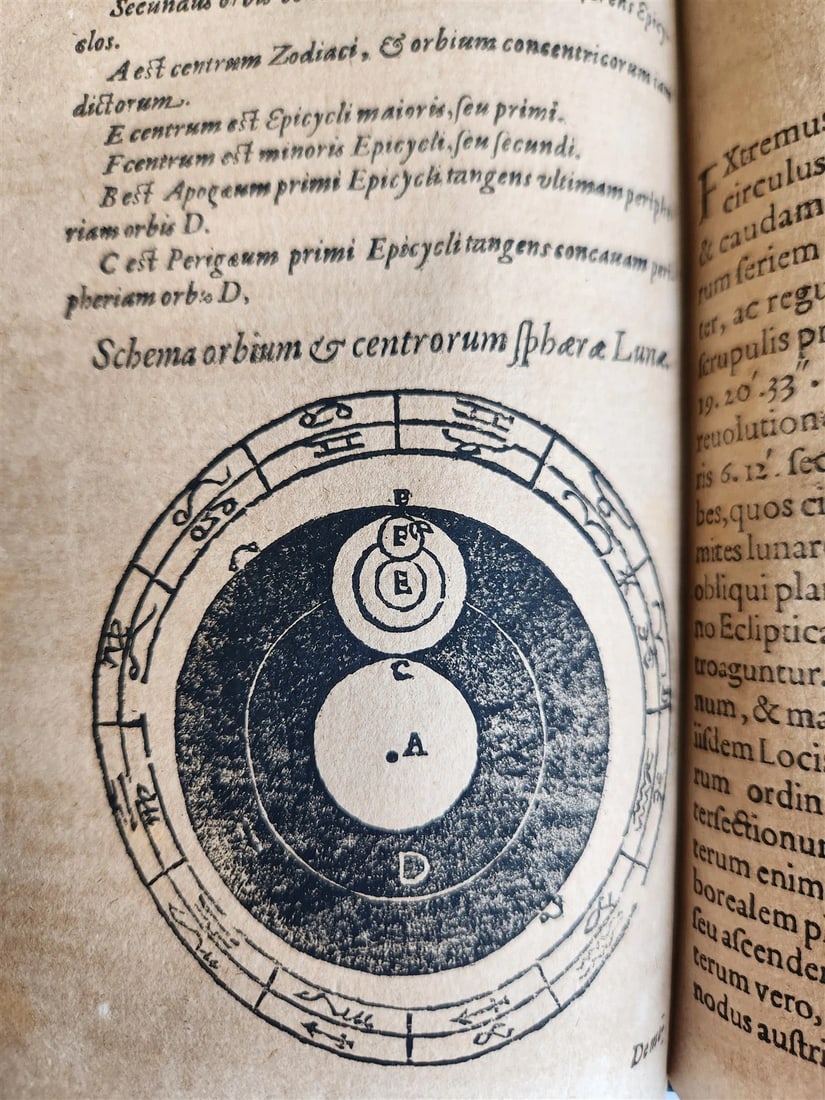 Secundus orbis
clos.
A est centrum Zodiaci, & orbium concentricorum iam
dictorum.
E centrum est Epicycli maioris, seu primi.
F centrum est minoris Epicycli, seu secundi.
B est Apogæum primi Epicycli tangens vltimam
riam orbis D.
C est Perigæum primi Epicycli tangens concauam
pheriam orbis D,
Schema orbium & centrorum sphæræ Lunæ.
B
F
E
C
A
D
Extremus
circulus
& caudam
rum seriem
ter, ac regu
scrupulis pr
19. 20'. 33''.
reuolutione
ris 6. 12'. sec
bes, quos ci
mites lunare
obliqui plan
no Ecliptica
troaguntur.
num, & ma
iisdem Locis
rum ordin
tersectionum
terum enim
borealem p
seu ascenden
terum vero,
nodus austri